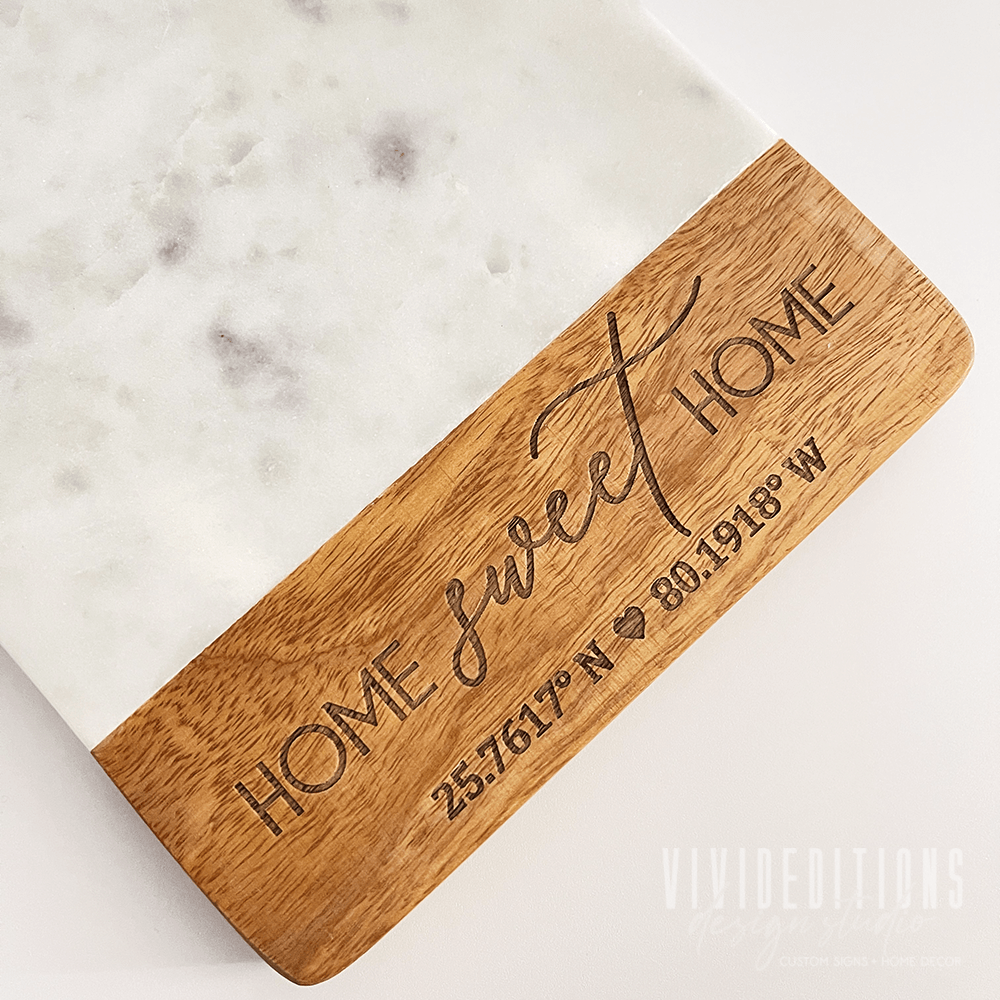 HOME sweet HOME
25.7617° N ♥ 80.1918° W
VIVIDEDITIONS
design studio
CUSTOM SIGNS + HOME DECOR